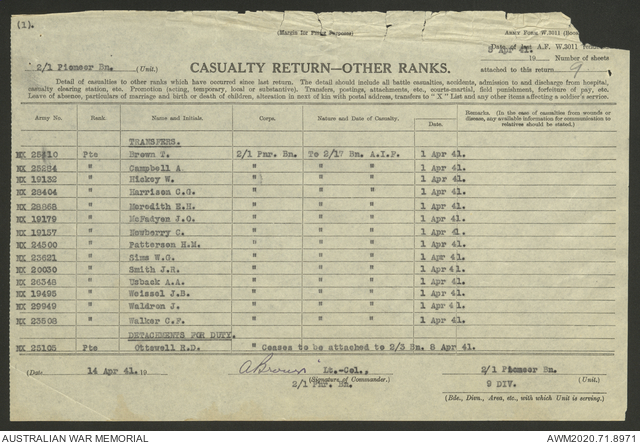 (1).
(Margin for Filing Purposes)
ARMY FORM W.3011
8 Apr 41.
Date of last A.F. W.3011
19
Number of sheets
2/1 Pioneer Bn. (Unit.)
CASUALTY RETURN—OTHER RANKS.
attached to this return 9
Detail of casualties to other ranks which have occurred since last return. The detail should include all battle casualties, accidents, admission to and discharge from hospital,
casualty clearing station, etc. Promotion (acting, temporary, local or substantive). Transfers, postings, attachments, etc., courts-martial, field punishment, forfeiture of pay, etc.
Leave of absence, particulars of marriage and birth or death of children, alteration in next of kin with postal address, transfers to "X" List and any other items affecting a soldier's service.
Army No. Rank. Name and Initials. Corps. Nature and Date of Casualty. Date. Remarks. (In the case of casualties from wounds or disease, any available information for communication to relatives should be stated.)
TRANSFERS.
NX 25810 Pte Brown T. 2/1 Pnr. Bn. To 2/17 Bn. A.I.F. 1 Apr 41.
NX 25284 " Campbell A " " 1 Apr 41.
NX 19132 " Hickey W. " " 1 Apr 41.
NX 28404 " Harrison C.G. " " 1 Apr 41.
NX 28868 " Meredith E.H. " " 1 Apr 41.
NX 19179 " McFadyen J.O. " " 1 Apr 41.
NX 19157 " Newberry C. " " 1 Apr 41.
NX 24500 " Patterson H.M. " " 1 Apr 41.
NX 23621 " Sims W.G. " " 1 Apr 41.
NX 20030 " Smith J.H. " " 1 Apr 41.
NX 26348 " Usback A.A. " " 1 Apr 41.
NX 19495 " Weissel J.B. " " 1 Apr 41.
NX 29949 " Waldron J. " " 1 Apr 41.
NX 23508 " Walker C.F. " " 1 Apr 41.
DETACHMENTS FOR DUTY.
NX 23105 Pte Ottewell H.D. " Ceases to be attached to 2/3 Bn. 8 Apr 41.
(Date 14 Apr 41. 19
ABrown Lt.-Col.,
(Signature of Commander.)
2/1 Pnr. Bn.
2/1 Pioneer Bn.
9 DIV. (Unit.)
(Bde., Divn., Area, etc., with which Unit is serving.)
AUSTRALIAN WAR MEMORIAL
AWM2020.71.8971